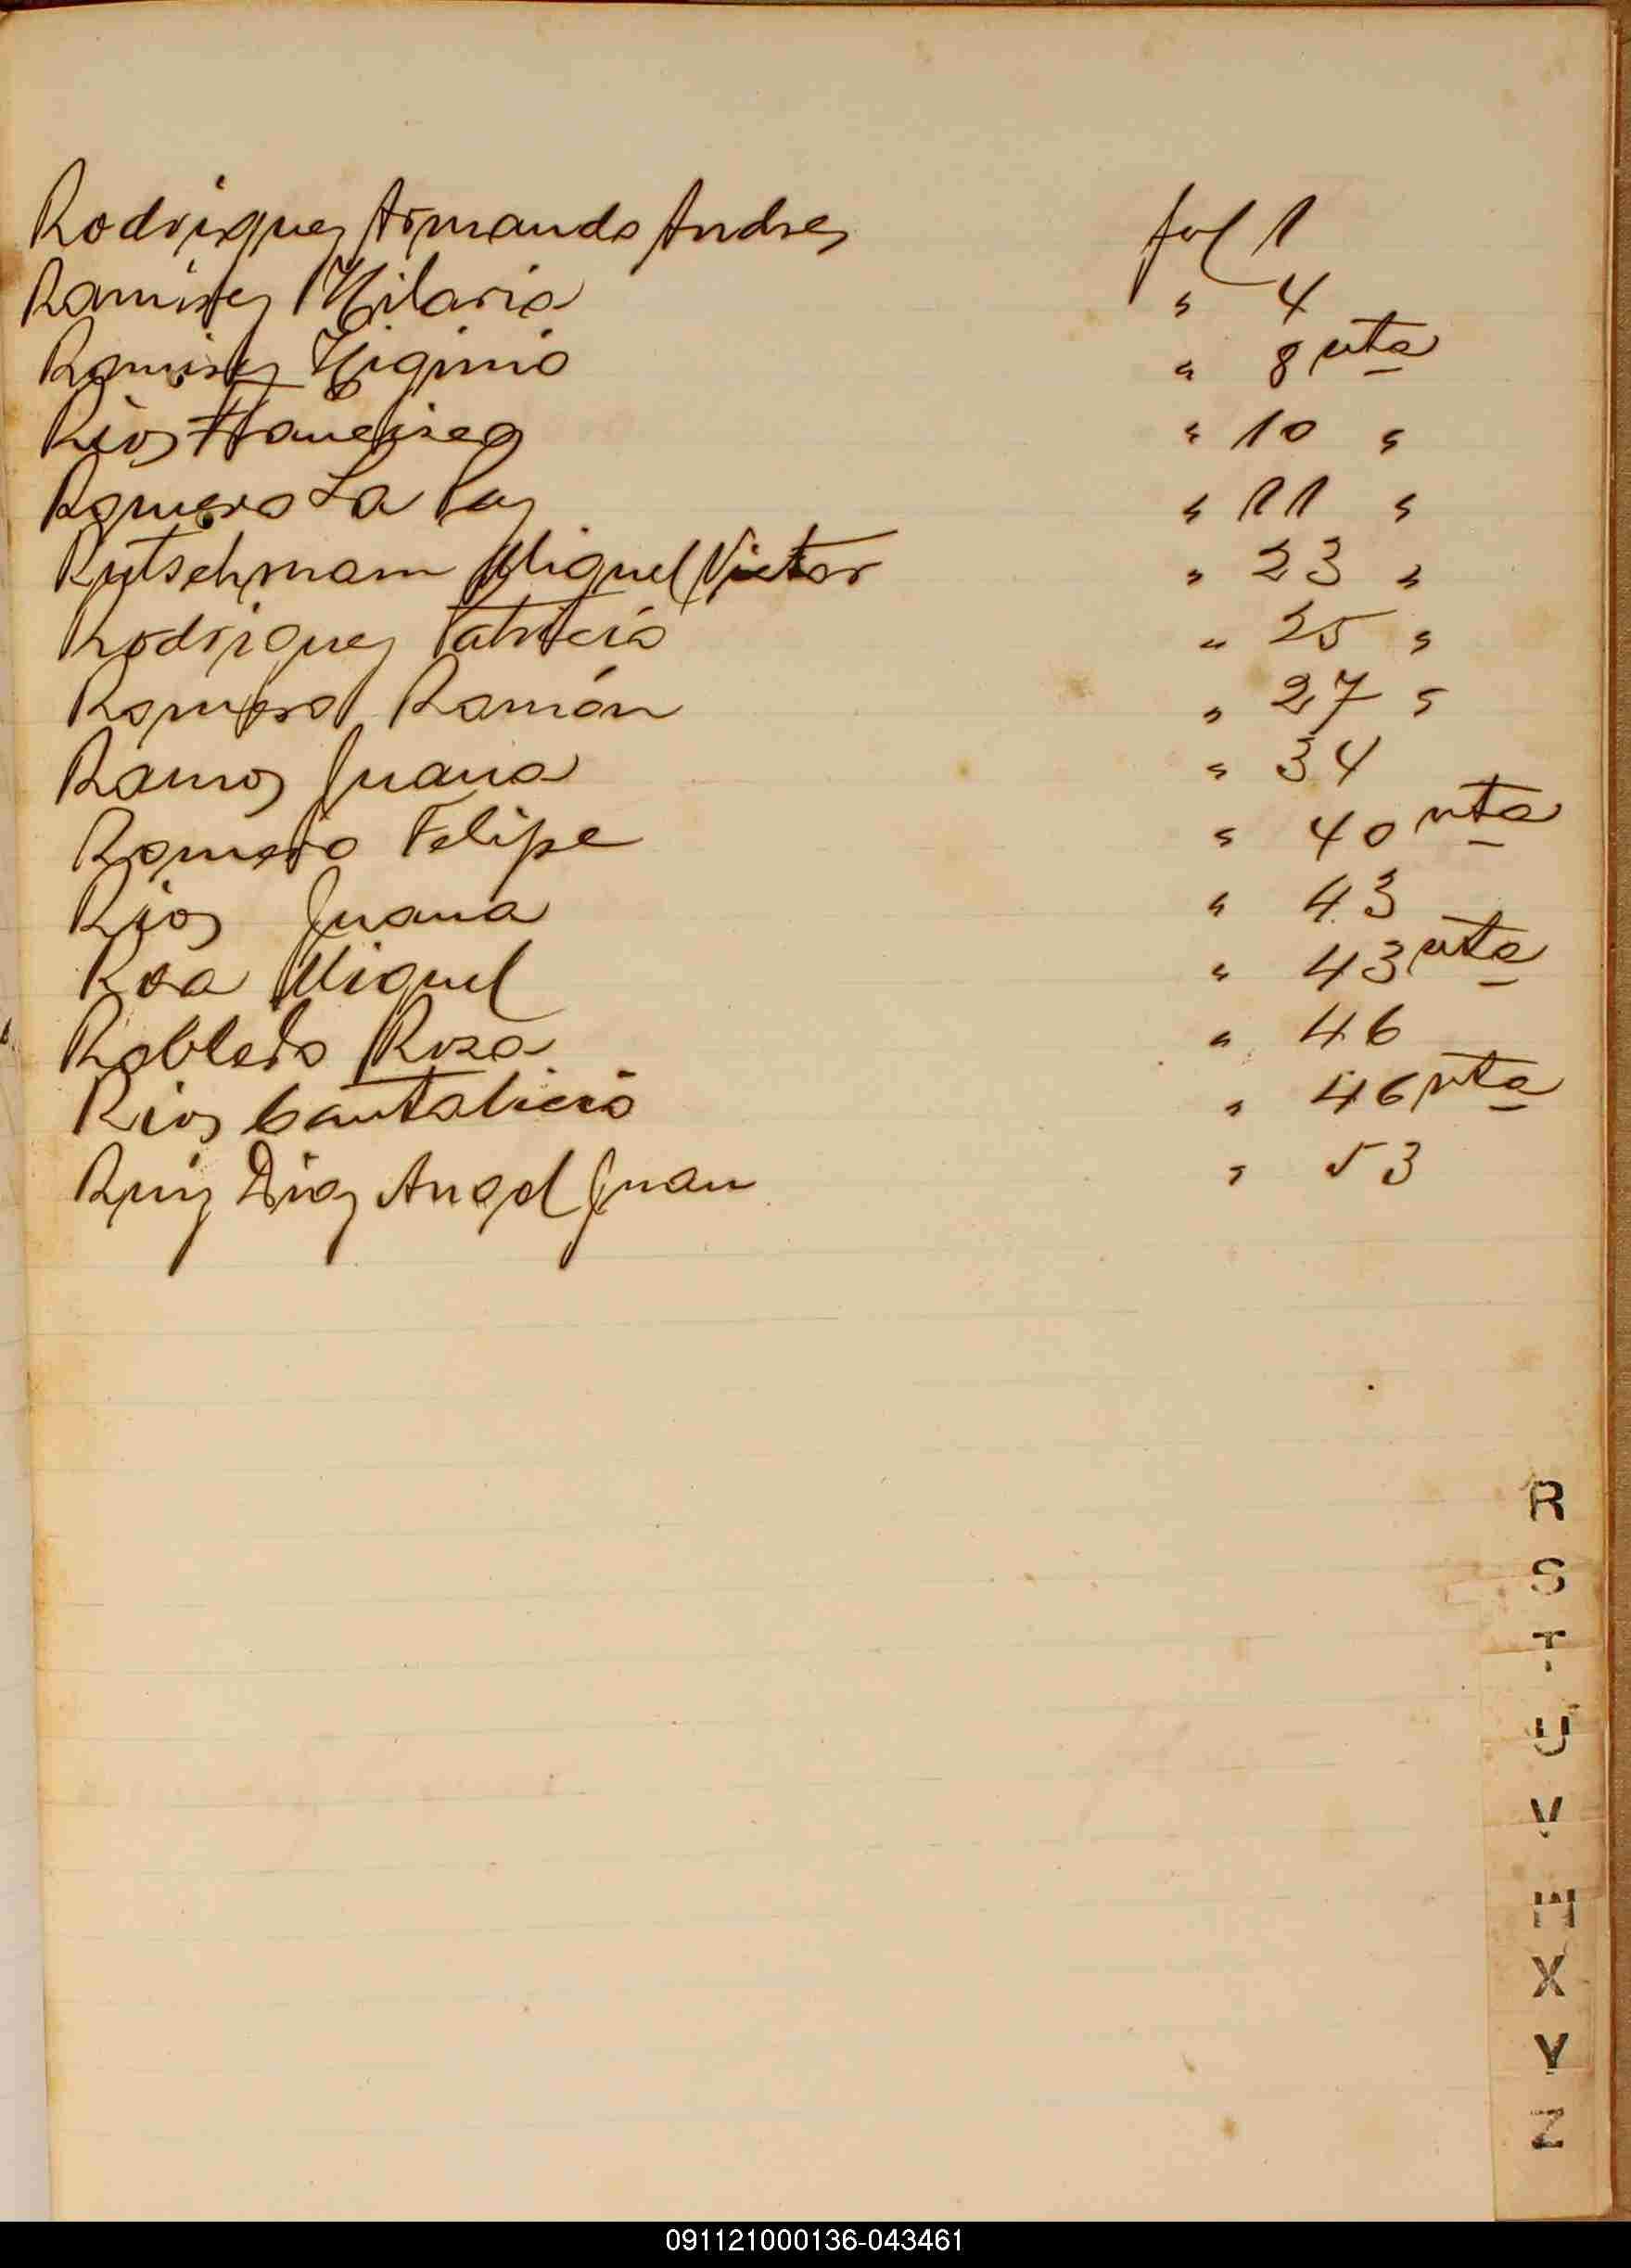 Rodriguez Armando Andres fol 1
Ramirez Hilario " 4
Ramirez Higinio " 8 vta
Rios Francisco " 10 "
Romero La Paz " 11 "
Rutschmam Miguel Victor " 23 "
Rodriguez Patricio " 25 "
Romero Ramón " 27 "
Ramos Juana " 34
Romero Felipe " 40 vta
Rios Juana " 43
Roa Miguel " 43 vta
Robledo Rosa " 46
Rios Cantalicio " 46 vta
Ruiz Diaz Angel Juan " 53
R
S
T
U
V
W
X
Y
Z
091121000136-043461